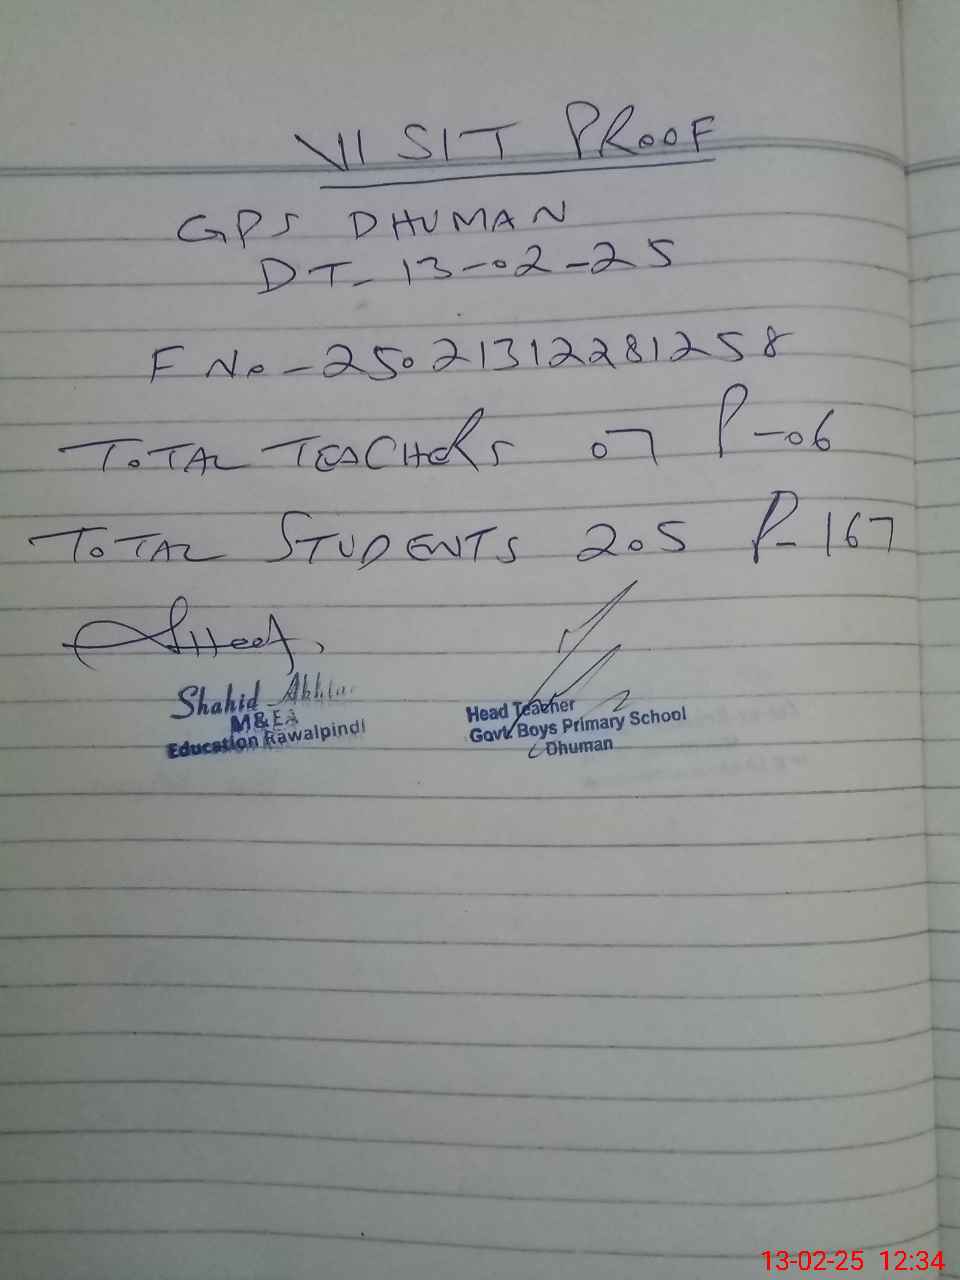 VISIT PROOF
GPS DHUMAN
DT- 13-02-25
F No - 25021312281258
TOTAL TEACHERS 07 P-06
TOTAL STUDENTS 205 P-167
Shahid Akhtar
M&EA
Education Rawalpindi
Head Teacher
Govt. Boys Primary School
Dhuman
13-02-25 12:34